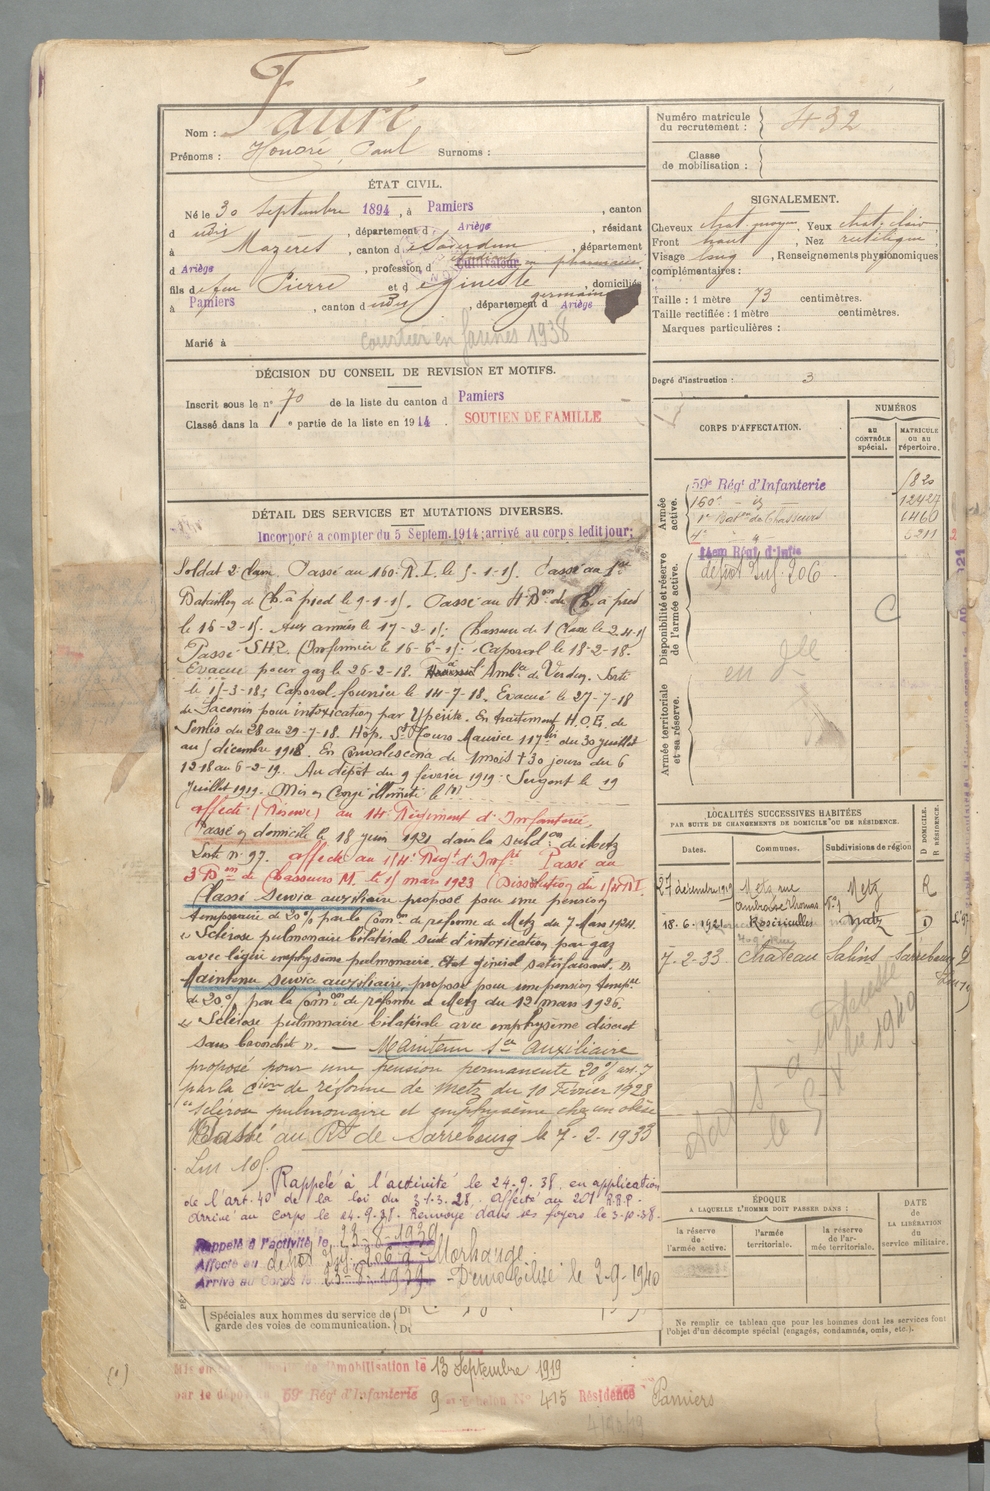 Nom : Fauré
Prénoms : Honoré, Paul Surnoms :
ÉTAT CIVIL.
Né le 30 Septembre 1894, à Pamiers, canton
d udis, département d Ariège, résidant
à Mazères, canton de Saverdun, département
d Ariège, profession d cultivateur étudiant en pharmacie,
fils de feu Pierre et d eginette germain, domiciliés
à Pamiers, canton d udis, département d Ariège
Marié à
courtier en farines 1938
DÉCISION DU CONSEIL DE REVISION ET MOTIFS.
Inscrit sous le n° 70 de la liste du canton d Pamiers
Classé dans la 1e partie de la liste en 1914. SOUTIEN DE FAMILLE
DÉTAIL DES SERVICES ET MUTATIONS DIVERSES.
Incorporé a compter du 5 Septem. 1914; arrivé au corps ledit jour;
Soldat 2e classe. Passé au 160e R.I. le 5-1-15. Passé au 1er
Bataillon de Ch. à pied le 9-1-15. Passé au 4e Bon de Ch. à pied
le 16-2-15. Aux armées le 17-2-15. Chasseur de 1e Classe le 2.4.15
Passé S.H.R. Infirmier le 16-6-15. Caporal le 18-2-18.
Evacué pour gaz le 26-2-18. Amb.ce de Verdun. Sorti
le 15-3-18; Caporal fourrier le 14-7-18. Evacué le 27-7-18
de Taconin pour intoxication par Ypérite. En traitement H.O.E. de
Senlis du 28 au 29-7-18. Hôp. St Jours Maurice 117 bis du 30 juillet
au 5 décembre 1918. En Convalescence de 1 mois + 30 jours du 6
12-18 au 6-2-19. Au dépôt du 9 février 1919. Sergent le 19
Juillet 1919. Mis en Congé illimité le (1)
affecté (Réserve) au 14e Régiment d'Infanterie,
Passé en domicile le 18 juin 1921 dans la subd.on de Metz
Liste n° 97. affecté au 14e Régt d'Infie Passé au
3e Bon de Chasseurs M. le 15 mars 1923 (Dissolution du R.I.
Classé service auxiliaire proposé pour une pension
temporaire de 20% par la Comon de réforme de Metz du 7 Mars 1924.
« Sclérose pulmonaire bilatérale suite d'intoxication par gaz
avec légère emphysème pulmonaire. Etat général satisfaisant. »
Maintenu service auxiliaire, proposé pour une pension tempre
de 20% par la Comon de réforme de Metz du 12 mars 1926.
« Sclérose pulmonaire bilatérale avec emphysème discret
sans bronchite ». — Maintenu sce auxiliaire
proposé pour une pension permanente 20% art. 7
par la Cion de réforme de Metz du 10 Février 1928
"sclérose pulmonaire et emphysème chez un obèse
Passé au Rt de Sarrebourg le 7-2-1933
Rappelé à l'activité le 24.9.38 en application
de l'art. 40 de la loi du 31.3.28. Affecté au 201 R.R.P.
arrivé au corps le 24.9.38. Renvoyé dans ses foyers le 3.10.38.
Rappelé à l'activité le 23-8-1939
Affecté au dépôt Inf. 206 à Morhange.
Arrivé au Corps le 23-8-1939 - Démobilisé le 2-9-1940
Spéciales aux hommes du service de
garde des voies de communication.
Numéro matricule
du recrutement : 432
Classe
de mobilisation :
SIGNALEMENT.
Cheveux chat. moyen, Yeux chat. clair
Front haut, Nez rectiligne,
Visage long, Renseignements physionomiques
complémentaires :
Taille : 1 mètre 73 centimètres.
Taille rectifiée : 1 mètre centimètres.
Marques particulières :
Degré d'instruction : 3
CORPS D'AFFECTATION.
NUMÉROS
au CONTRÔLE spécial.
MATRICULE ou au répertoire.
Armée active.
59e Régt d'Infanterie 1820
160e - id 12427
1er Baton de Chasseurs 6460
4e - id
Disponibilité et réserve de l'armée active.
14em Régt d'Infie
dépôt Inf. 206
C
Armée territoriale et sa réserve.
LOCALITÉS SUCCESSIVES HABITÉES
PAR SUITE DE CHANGEMENTS DE DOMICILE OU DE RÉSIDENCE.
Dates. Communes. Subdivisions de région D DOMICILE. R RÉSIDENCE.
27 décembre 1919 Metz rue Ambroise Thomas n° 1 Metz R
18-6-1921 Rosérieulles Metz D
7-2-33 Château Salins Sarrebourg D
ÉPOQUE
A LAQUELLE L'HOMME DOIT PASSER DANS :
la réserve de l'armée active.
l'armée territoriale.
la réserve de l'armée territoriale.
DATE DE LA LIBÉRATION du service militaire.
Ne remplir ce tableau que pour les hommes dont les services font
l'objet d'un décompte spécial (engagés, condamnés, omis, etc.).
(1) Mis en de démobilisation le 13 Septembre 1919
par le dépôt du 59e Régt d'Infanterie 9e échelon N° 415 Résidence Pamiers